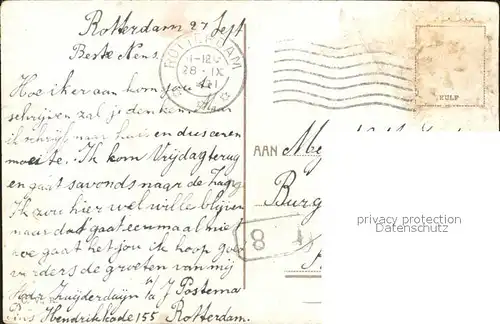 Rotterdam 27 Sept
Beste Mens.
Hoe ik er aan kom jou te
schrijven zal je denken maar
ik schrijf naar huis en dus eenen
moeite. Ik kom Vrijdag terug
en gaat savonds naar de
Ik zou hier wel wille blijven
maar dat gaat eenmaal niet
hoe gaat het jou ik hoop goe
verders de groeten van mij
Zuijderduijn J Postema
Prins Hendrikkade 155 Rotterdam.
ROTTERDAM
28 IX
KULP
AAN
Me
Burg
8
privacy protection
Datenschutz